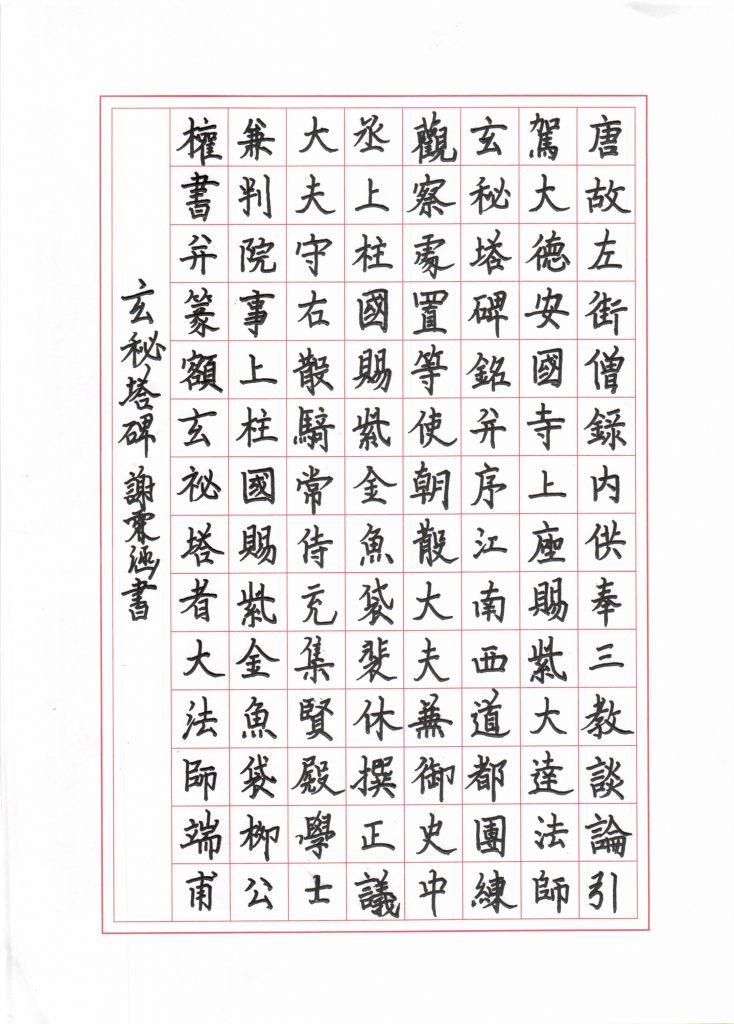 唐故左街僧錄內供奉三教談論引
駕大德安國寺上座賜紫大達法師
玄秘塔碑銘并序江南西道都團練
觀察處置等使朝散大夫兼御史中
丞上柱國賜紫金魚袋裴休撰正議
大夫守右散騎常侍充集賢殿學士
兼判院事上柱國賜紫金魚袋柳公
權書并篆額玄祕塔者大法師端甫
玄秘塔碑 謝書